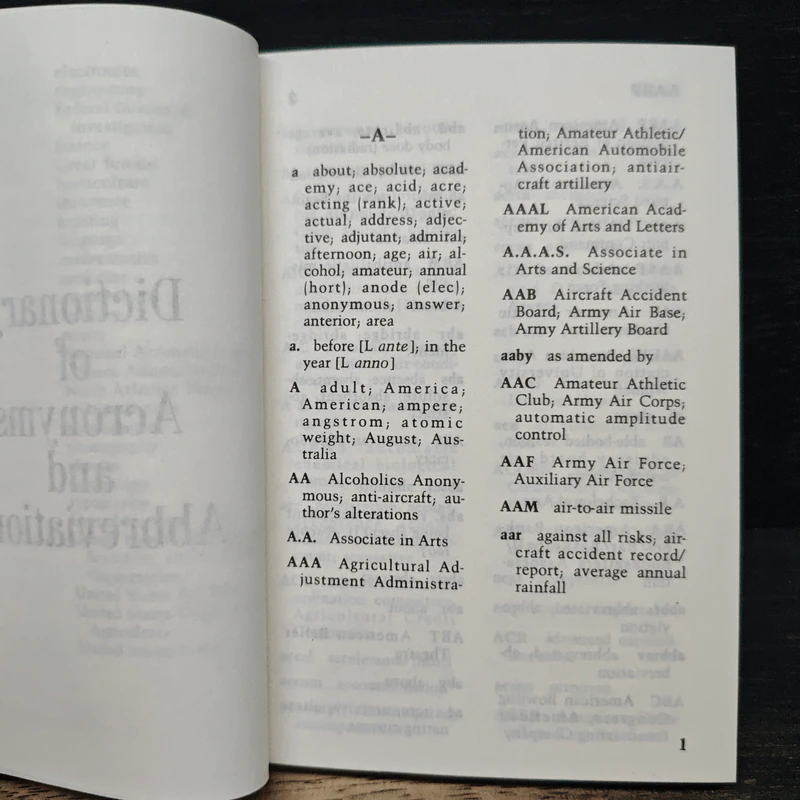 –A–
a about; absolute; acad-
emy; ace; acid; acre;
acting (rank); active;
actual; address; adjec-
tive; adjutant; admiral;
afternoon; age; air; al-
cohol; amateur; annual
(hort); anode (elec);
anonymous; answer;
anterior; area
a. before [L ante]; in the
year [L anno]
A adult; America;
American; ampere;
angstrom; atomic
weight; August; Aus-
tralia
AA Alcoholics Anony-
mous; anti-aircraft; au-
thor's alterations
A.A. Associate in Arts
AAA Agricultural Ad-
justment Administra-
tion; Amateur Athletic/
American Automobile
Association; antiair-
craft artillery
AAAL American Acad-
emy of Arts and Letters
A.A.A.S. Associate in
Arts and Science
AAB Aircraft Accident
Board; Army Air Base;
Army Artillery Board
aaby as amended by
AAC Amateur Athletic
Club; Army Air Corps;
automatic amplitude
control
AAF Army Air Force;
Auxiliary Air Force
AAM air-to-air missile
aar against all risks; air-
craft accident record/
report; average annual
rainfall
1